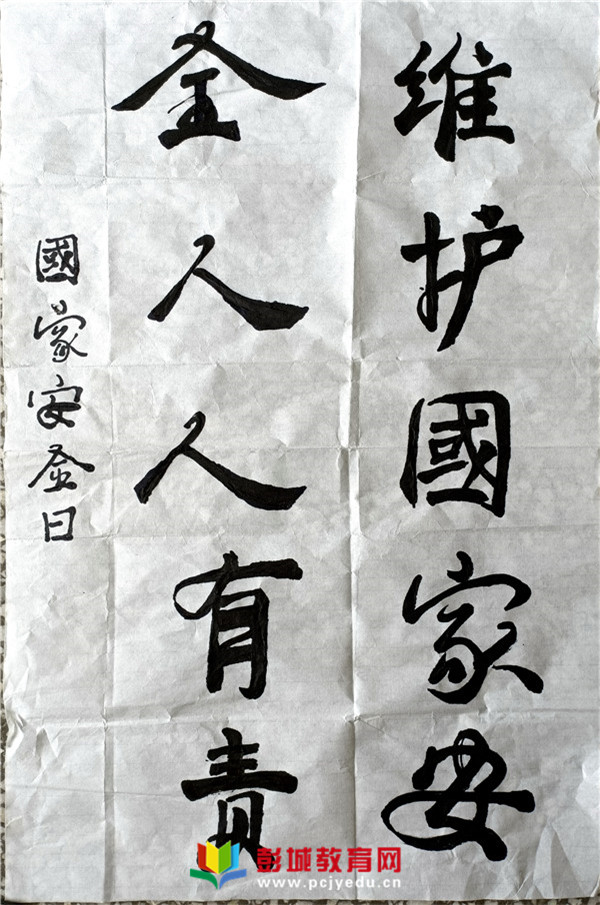 维护國家安
全人人有责
國家安全日
彭城教育网
www.pcjyedu.cn